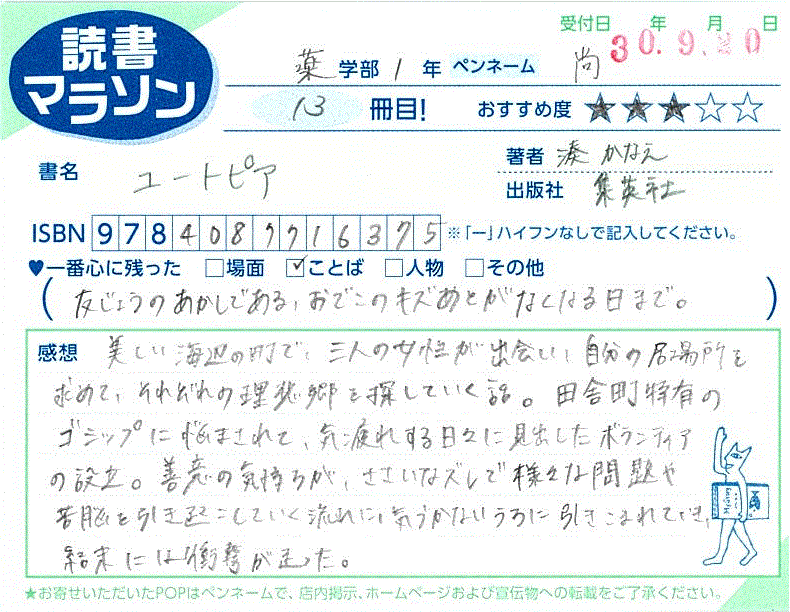 読書
マラソン
受付日 年 月 日
30.9.20
薬 学部 1 年 ペンネーム 尚
13 冊目! おすすめ度 ★★★☆☆
書名 ユートピア
著者 湊かなえ
出版社 集英社
ISBN 9784087716375 ※「ー」ハイフンなしで記入してください。
♥一番心に残った □場面 ☑ことば □人物 □その他
(友じょうのあかしである、おでこのキズあとがなくなる日まで。)
感想 美しい海辺の町で、三人の女性が出会い、自分の居場所を
求めて、それぞれの理想郷を探していく話。田舎町特有の
ゴシップに悩まされて、気疲れする日々に見出したボランティア
の設立。善意の気持ちが、ささいなズレで様々な問題や
苦脳を引き起こしていく流れに、気づかないうちに引きこまれていき、
結末には衝撃が走った。
★お寄せいただいたPOPはペンネームで、店内掲示、ホームページおよび宣伝物への転載をご了承ください。